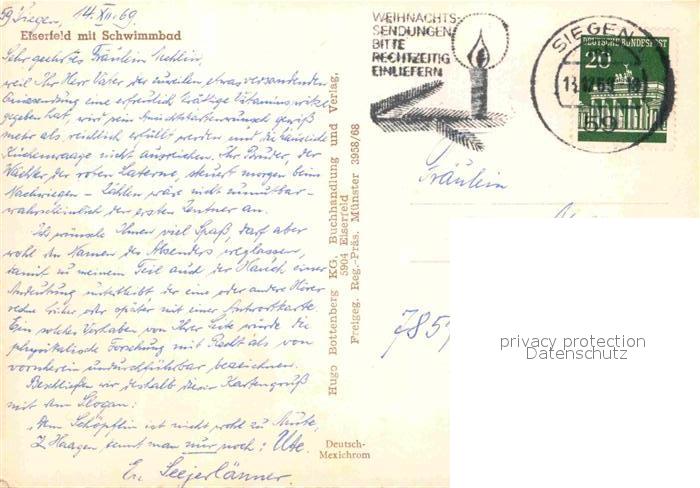 59 Siegen, 14.XII.69.
Eiserfeld mit Schwimmbad
Sehr geehrtes Fräulein
weil Ihr Herr Vater der zuweilen etwas versandenden
eine erfreulich kräftige Vitaminspritze
gegeben hat, wird sein Ansichtskartenwunsch gewiß
mehr als reichlich erfüllt werden und die häusliche
Küchenwaage nicht ausreichen. Ihr Bruder, der
Wächter der roten Laterne, steuert morgen beim
Nachwiegen – Zählen wäre nicht zumutbar –
wahrscheinlich den ersten Zentner an.
Ich wünsche Ihnen viel Spaß, darf aber
wohl den Namen des Absenders weglassen,
damit zu meinem Teil auch der Hauch einer
Andeutung unterbleibt der eine oder andere Hörer
rechne früher oder später mit einer Antwortkarte.
Ein solches Vorhaben von Ihrer Seite würde die
physikalische Forschung mit Recht als von
vornherein undurchführbar bezeichnen.
Beschließen wir deshalb diesen Kartengruß
mit dem Slogan:
"Dem Schöpflin ist nicht wohl zu Mute,
In Haagen kennt man nur noch: Ute.
Ein Seejerlänner.
Deutsch-
Mexichrom
Hugo Bottenberg KG. Buchhandlung und Verlag.
5904 Eiserfeld
Freigeg. Reg.-Präs. Münster 3958/68
WEIHNACHTS-
SENDUNGEN
BITTE
RECHTZEITIG
EINLIEFERN
SIEGEN
59
DEUTSCHE BUNDESPOST
20
Fräulein
785
privacy protection
Datenschutz